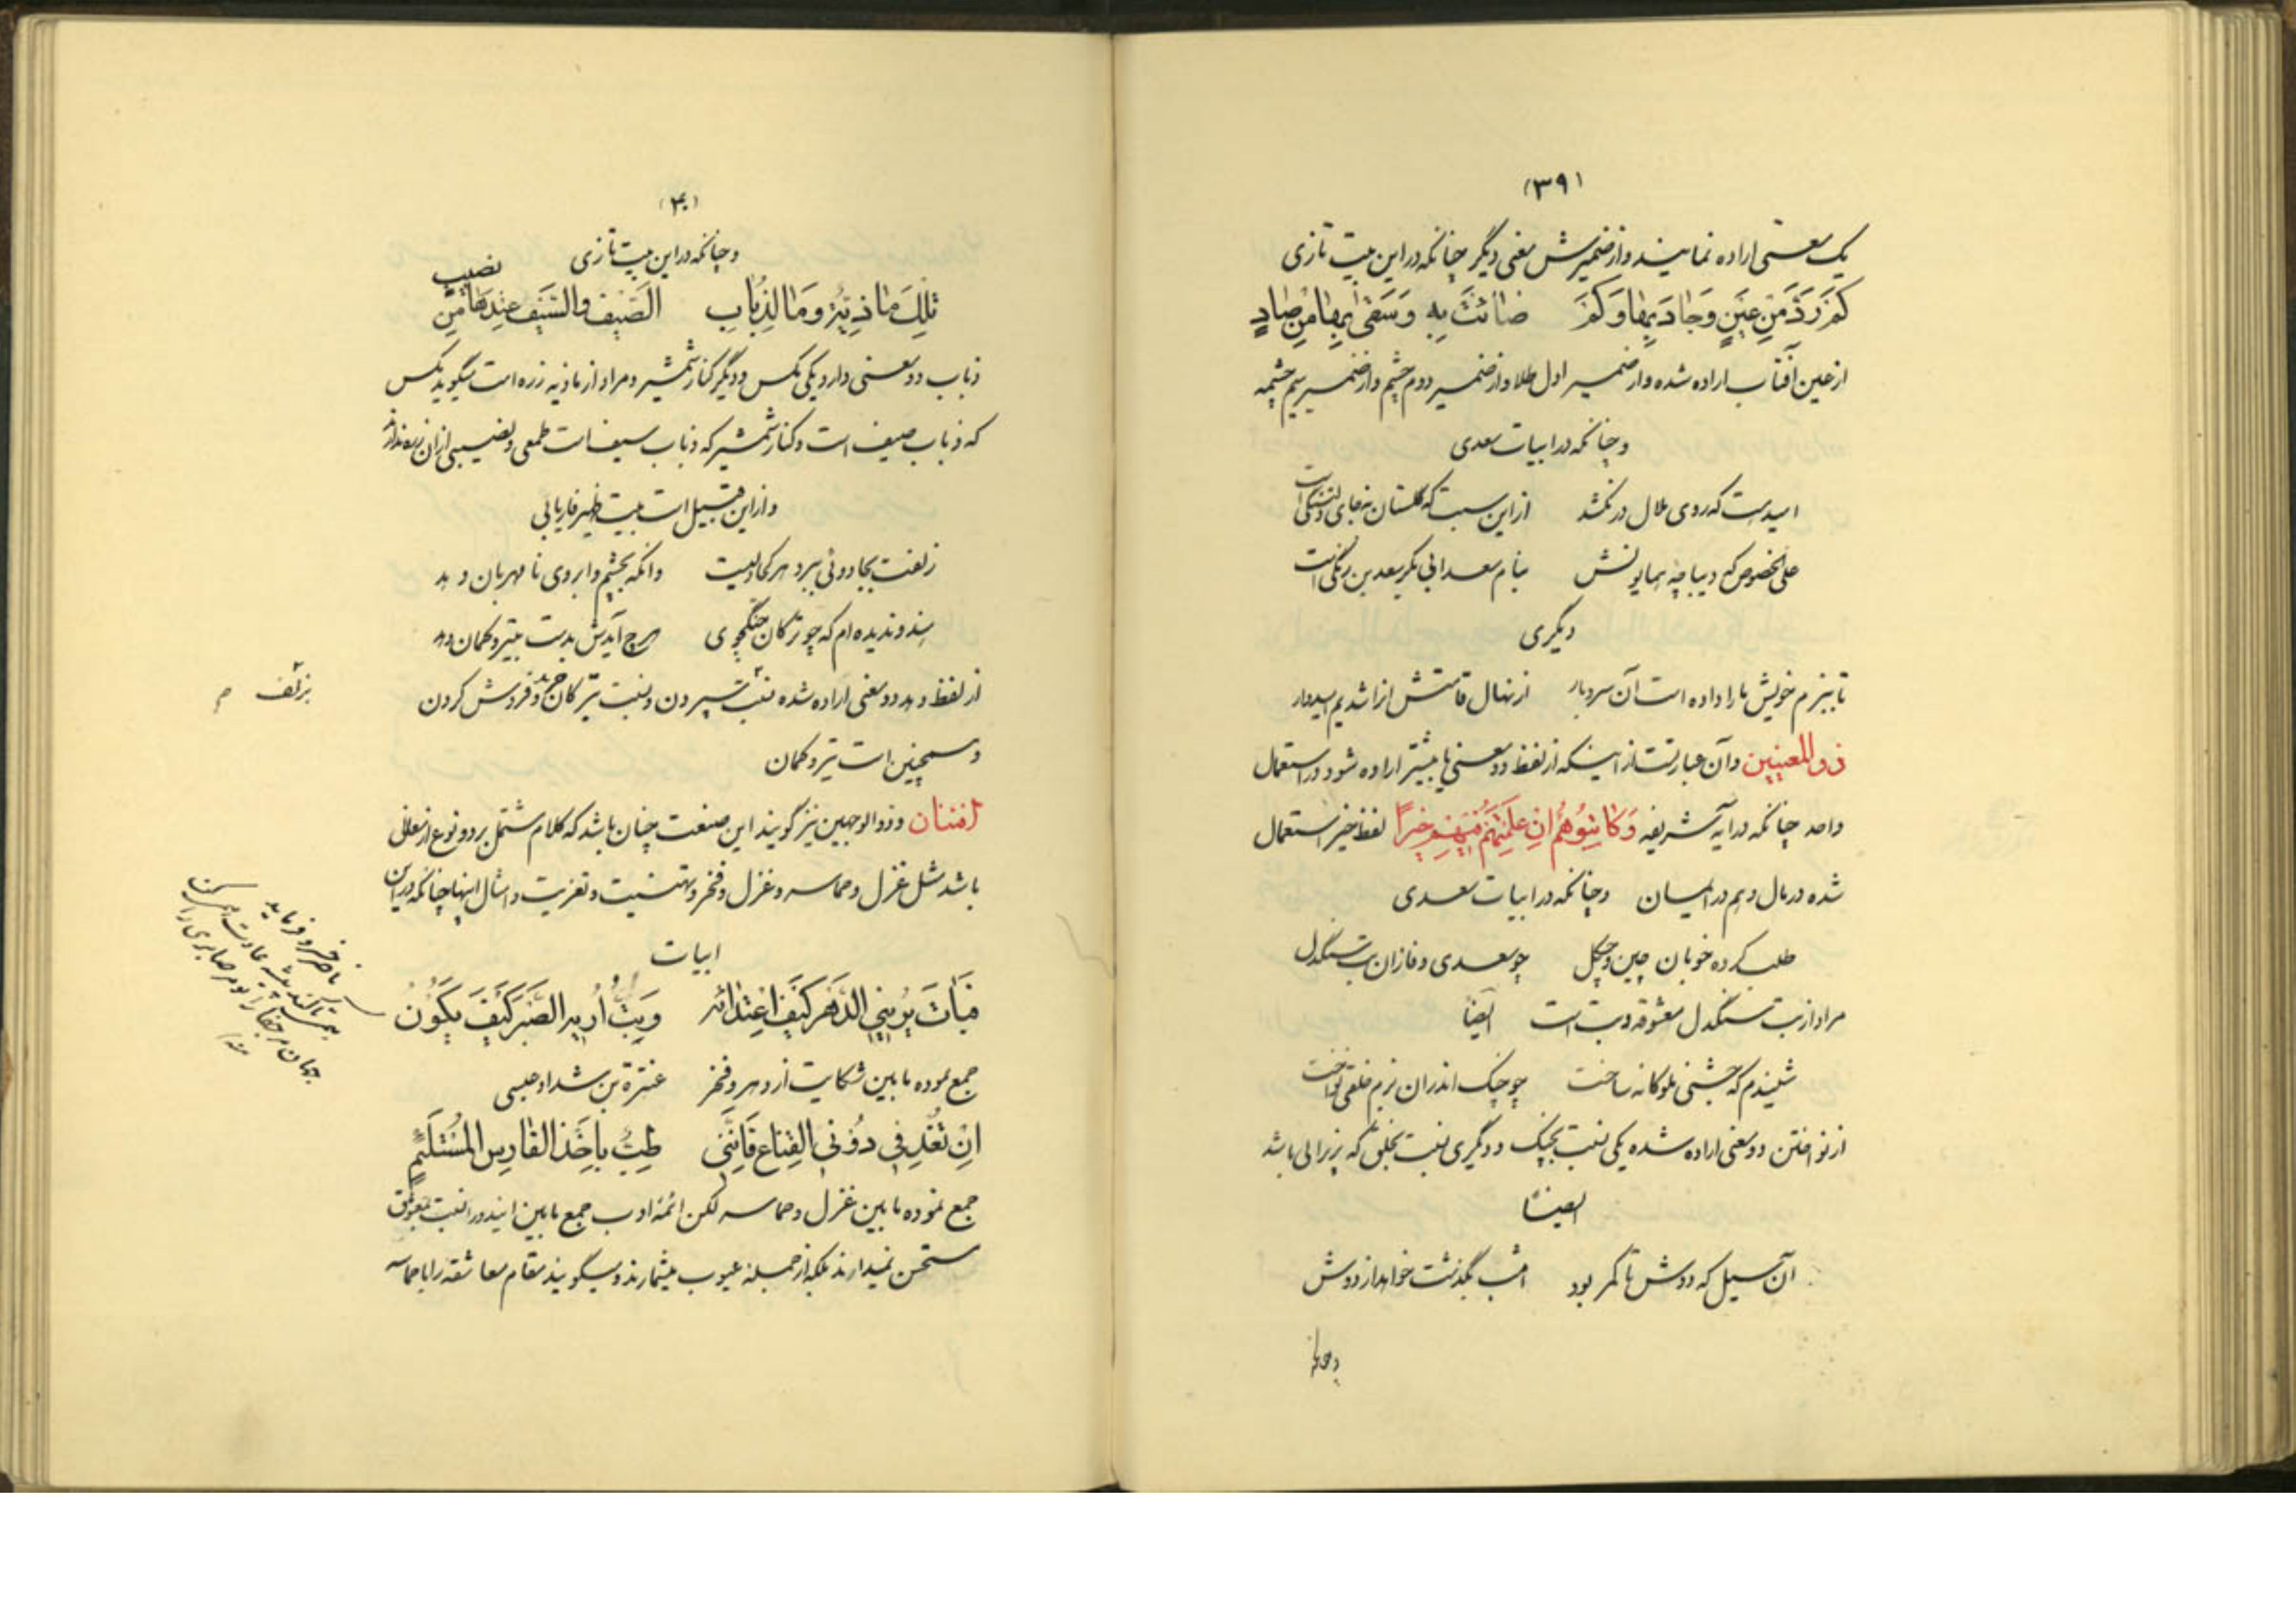 (۳۹)
یک معنی اراده نمایند و از ضمیرش معنی دیگر چنانکه در این بیت تازی
كَمْ رَدَّ مِنْ عَيْنٍ وَجَادَ بِهَا وَكَمْ ضَائَتْ بِهِ وَسَقَىٰ بِهَا مِنْ صَادٍ
از عین آفتاب اراده شده و از ضمیر اول طلا و از ضمیر دوم چشم و از ضمیر سیم چشمه
و چنانکه در ابیات سعدی
امید هست که روی ملال در نکشد از این سبب که گلستان نه جای دلتنگی است
علی الخصوص که دیباچه همایونش بنام سعد ابی بکر سعد بن زنگی است
دیگری
تا ببزم خویش ما را داده است آن سرو بار از نهال قامتش از آن شدیم امیدوار
ذو المعنیین و آن عبارتست از اینکه از لفظ دو معنی یا بیشتر اراده شود در استعمال
واحد چنانکه در آیه شریفه وَكَاتِبُوهُمْ اِنْ عَلِمْتُمْ فِيهِمْ خَيْرًا لفظ خیر استعمال
شده در مال و هم در ایمان و چنانکه در ابیات سعدی
طلب کرده خوبان چین و چگل چو سعدی وفا زان بت سنگدل
مراد از بت سنگدل معشوقه و بت است ایضا
شنیدم که جشنی ملوکانه ساخت چو چنگ اندران بزم خلقی نواخت
از نواختن دو معنی اراده شده یکی نسبت بچنگ و دیگری نسبت بخلق که پذیرائی باشد
ایضًا
آن سیل که دوش تا کمر بود امشب بگذشت خواهد از دوش
و چنانکه
(۴۰)
و چنانکه در این بیت تازی
تِلْكَ مَاذِيَّة وَمَا لِذُبَابِ الصَّيْفِ وَالسَّيْفِ عِنْدَهَا مِنْ نصیب
ذباب دو معنی دارد یکی مگس و دیگر کنار شمشیر و مراد از ماذیه زره است میگوید مگس
که ذباب صیف است و کنار شمشیر که ذباب سیف است طمعی و نصیبی از آن زره ندارند
و از این قبیل است بیت ظهیر فاریابی
زلفت بجادوئی ببرد هر کجا دلیست وانگه بچشم و ابروی نا مهربان دهد
هندو ندیده ام که چو ترکان جنگجوی هرچ آیدش بدست بتیر و کمان دهد
از لفظ دهد دو معنی اراده شده نسبت سپردن و نسبت بترکان خرید و فروش کردن
بزلف م
و همچنین است تیر و کمان
افتنان و ذو الوجهین نیز گویند این صنعت چنان باشد که کلام مشتمل بر دو نوع از معانی
باشد مثل غزل و حماسه و غزل و فخر و تهنیت و تعزیت و امثال اینها چنانکه در این
ابیات
فَبَاتَ يُرِينِي الدَّهْرُ كَيْفَ اعْتِدَائه وَبِتُّ اُرِيهِ الصَّبْرَ كَيْفَ يَكُونُ
ناصر خسرو فرماید
جمع نموده مابین شکایت از دهر و فخر عنترة بن شداد عبسی
اِنْ تُغْدِفِي دُونِي الْقِنَاعَ فَاِنَّنِي طَبٌّ بِاَخْذِ الْفَارِسِ الْمُسْتَلْئِمِ
جمع نموده مابین غزل و حماسه لکن ائمه ادب جمع مابین ایندو را نسبت بمعشوق
مستحسن نمیدارند بلکه از جمله عیوب میشمارند و میگویند مقام معاشقه را با حماسه